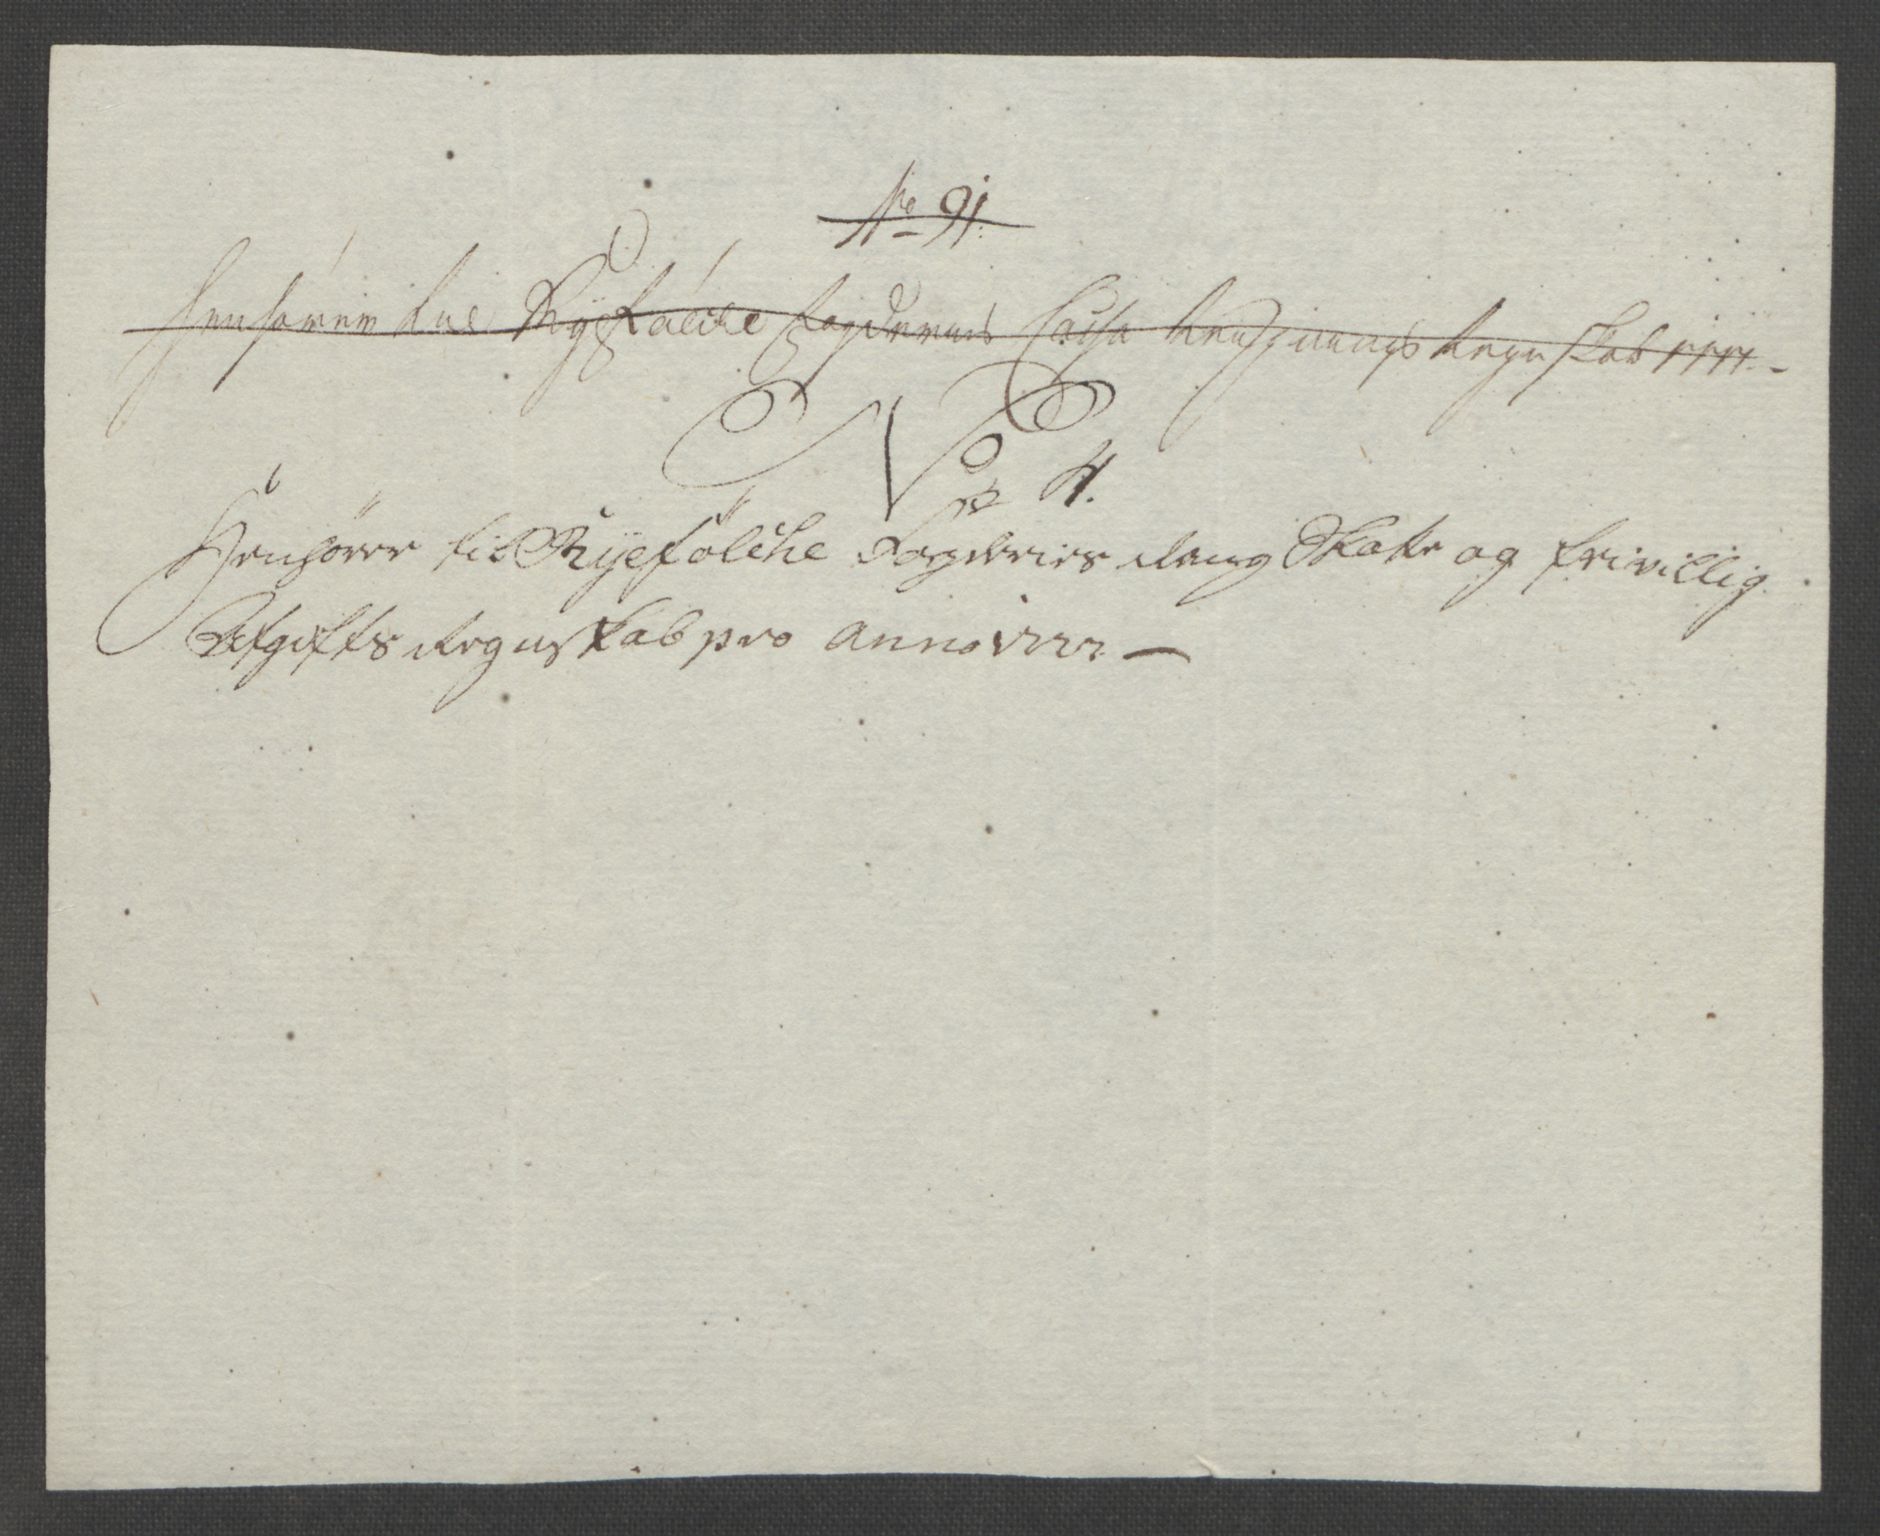 No 91.
Henhörer til Ryefölche Fogderies Cassa Regnskab 1777.
No 4.
Henhörer til Ryefölche Fogderies Rang Skatt og frivillig
Afgifts Regnskab pro anno 1777.